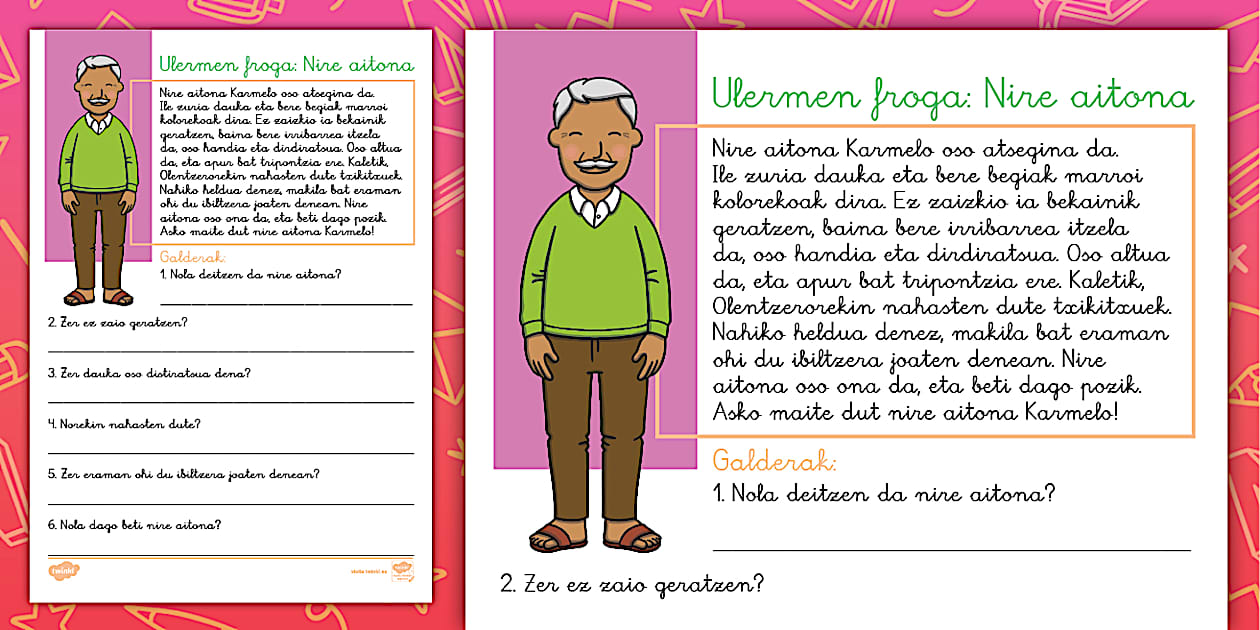 Ulermen froga: Nire aitona
Nire aitona Karmelo oso atsegina da.
Ile zuria dauka eta bere begiak marroi
kolorekoak dira. Ez zaizkio ia bekainik
geratzen, baina bere irribarrea itzela
da, oso handia eta dirdiratsua. Oso altua
da, eta apur bat tripontzia ere. Kaletik,
Olentzerorekin nahasten dute txikitxuek.
Nahiko heldua denez, makila bat eraman
ohi du ibiltzera joaten denean. Nire
aitona oso ona da, eta beti dago pozik.
Asko maite dut nire aitona Karmelo!
Galderak:
1. Nola deitzen da nire aitona?
2. Zer ez zaio geratzen?
3. Zer dauka oso distiratsua dena?
4. Norekin nahasten dute?
5. Zer eraman ohi du ibiltzera joaten denean?
6. Nola dago beti nire aitona?
twinkl
visita twinkl.es
Ulermen froga: Nire aitona
Nire aitona Karmelo oso atsegina da.
Ile zuria dauka eta bere begiak marroi
kolorekoak dira. Ez zaizkio ia bekainik
geratzen, baina bere irribarrea itzela
da, oso handia eta dirdiratsua. Oso altua
da, eta apur bat tripontzia ere. Kaletik,
Olentzerorekin nahasten dute txikitxuek.
Nahiko heldua denez, makila bat eraman
ohi du ibiltzera joaten denean. Nire
aitona oso ona da, eta beti dago pozik.
Asko maite dut nire aitona Karmelo!
Galderak:
1. Nola deitzen da nire aitona?
2. Zer ez zaio geratzen?